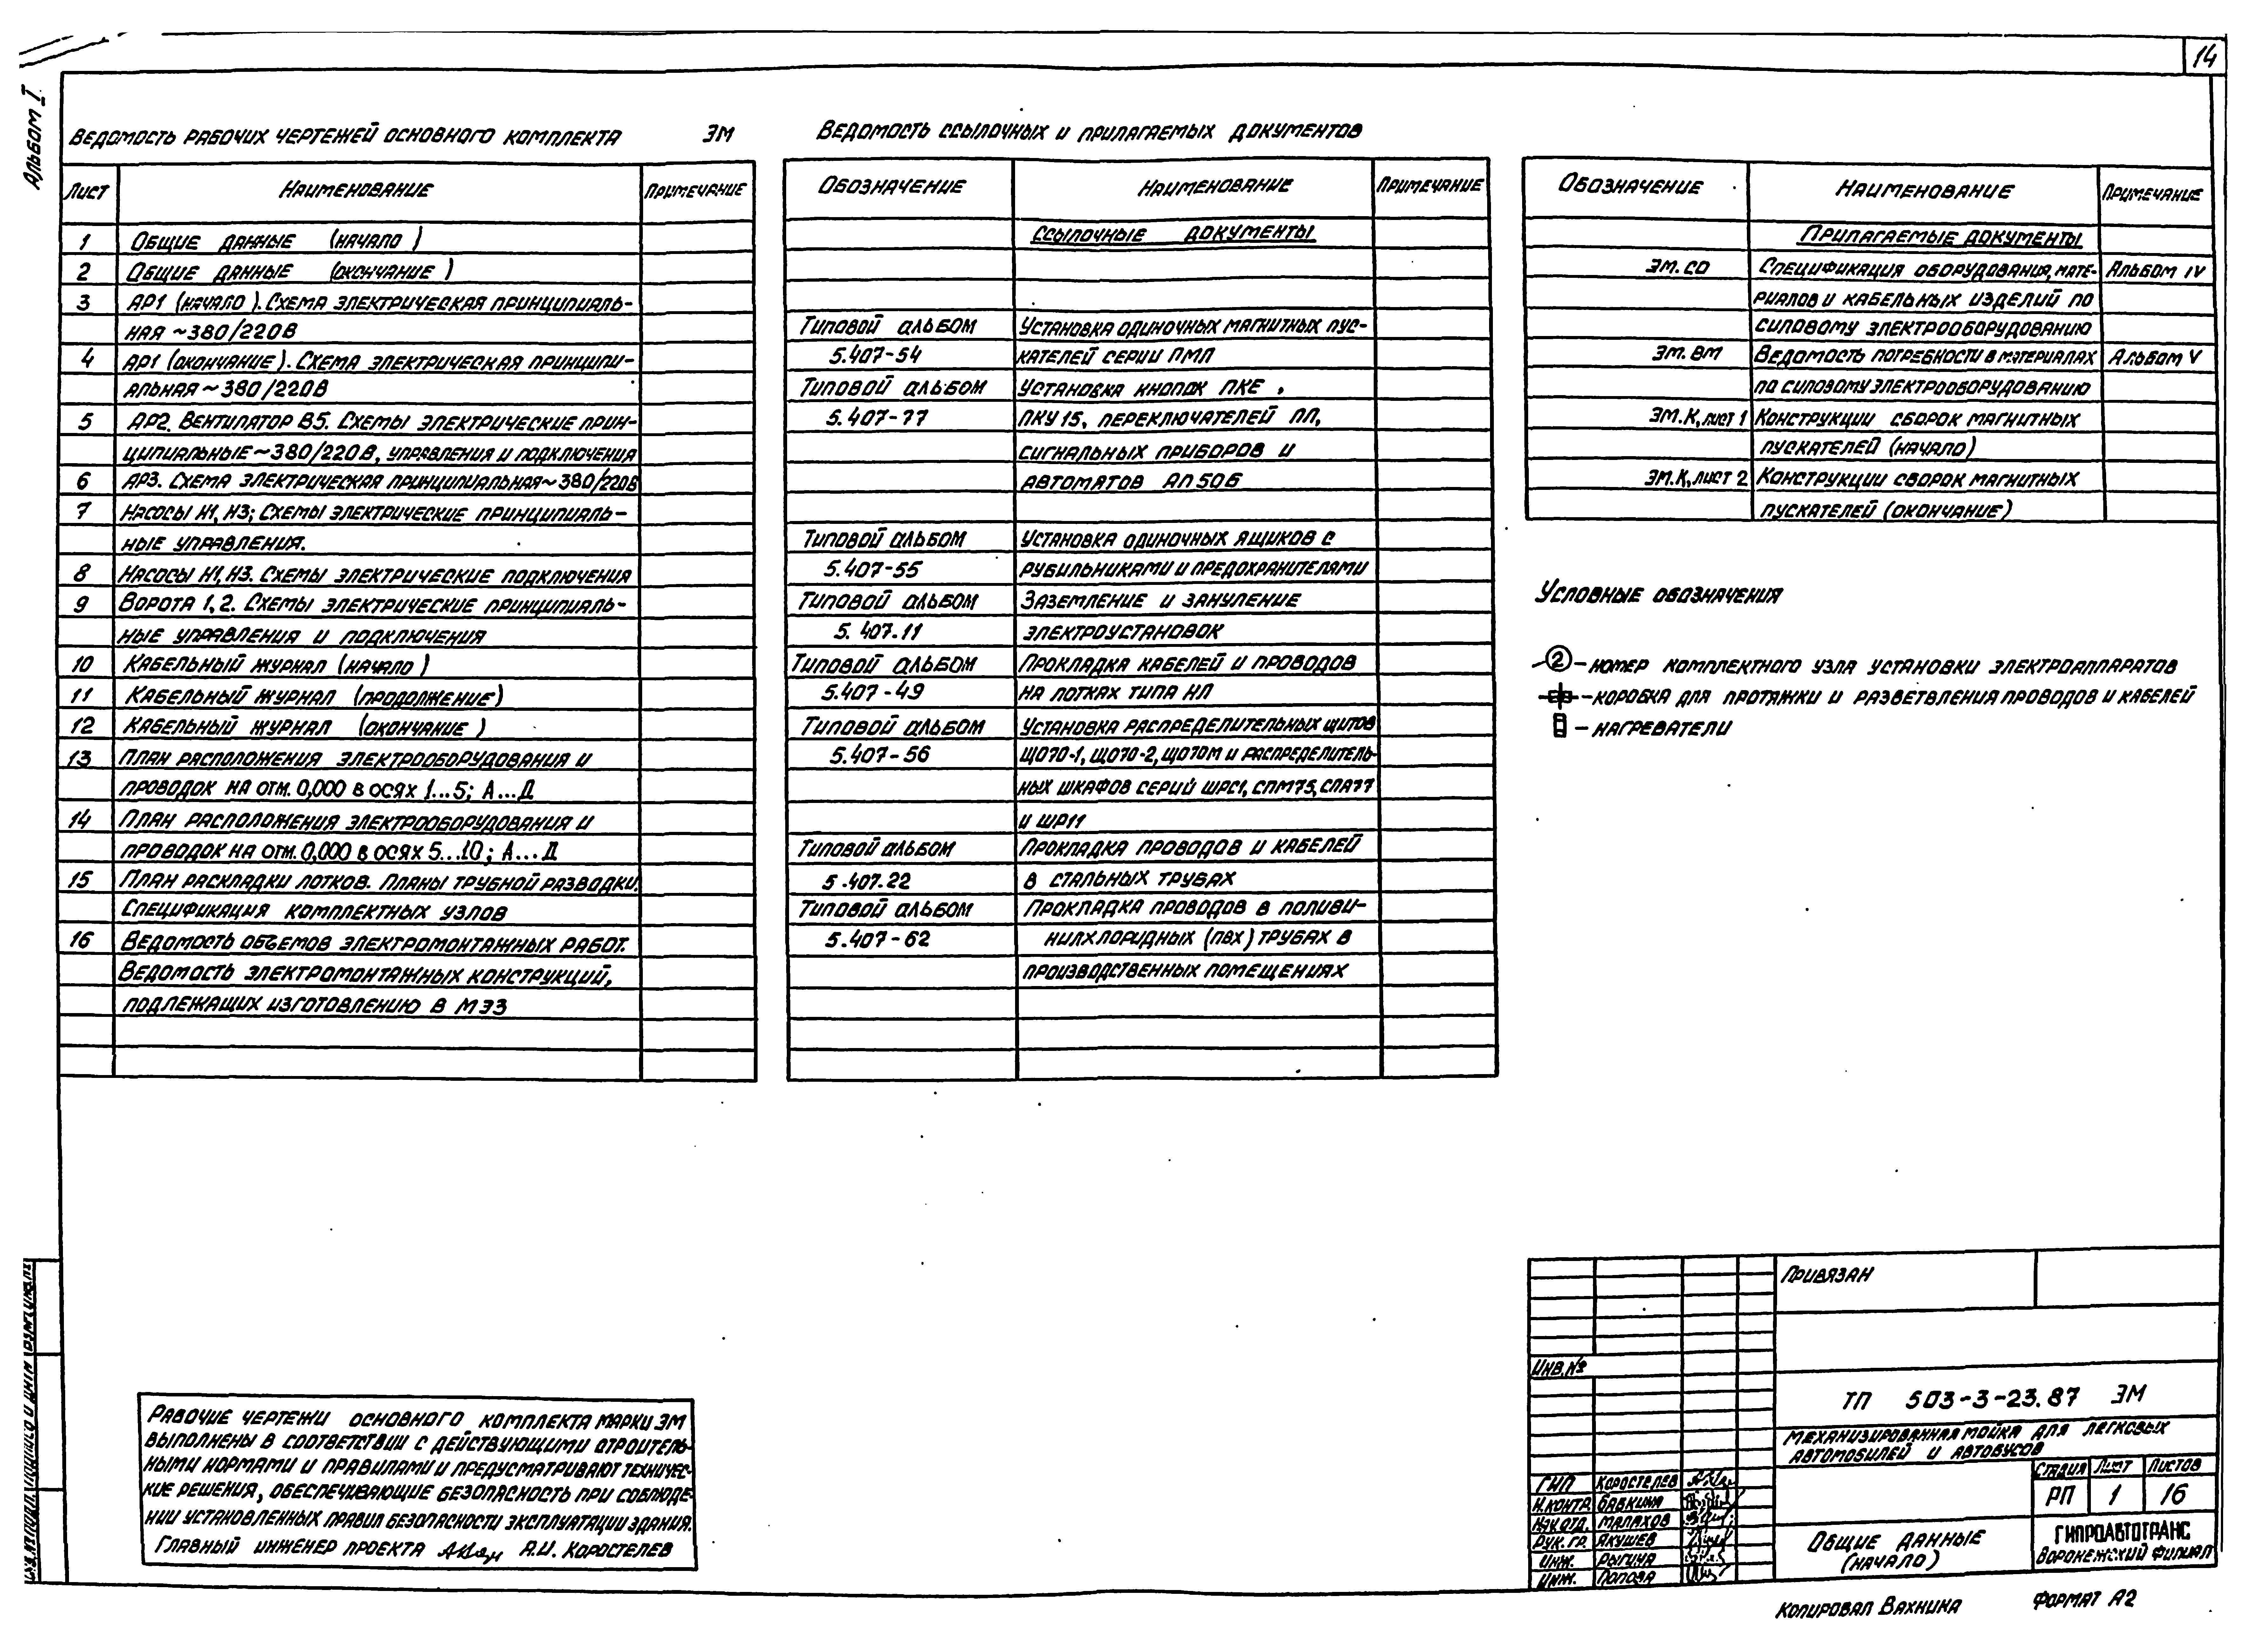 14
Альбом I
Ведомость рабочих чертежей основного комплекта ЭМ
Лист Наименование Примечание
1 Общие данные (начало)
2 Общие данные (окончание)
3 АР1 (начало). Схема электрическая принципиаль-
ная ~380/220В
4 АР1 (окончание). Схема электрическая принципи-
альная ~380/220В
5 АР2. Вентилятор В5. Схемы электрические прин-
ципиальные ~380/220В, управления и подключения
6 АР3. Схема электрическая принципиальная ~380/220В
7 Насосы Н1, Н3; Схемы электрические принципиаль-
ные управления.
8 Насосы Н1, Н3. Схемы электрические подключения
9 Ворота 1, 2. Схемы электрические принципиаль-
ные управления и подключения
10 Кабельный журнал (начало)
11 Кабельный журнал (продолжение)
12 Кабельный журнал (окончание)
13 План расположения электрооборудования и
проводок на отм. 0,000 в осях 1...5; А...Д
14 План расположения электрооборудования и
проводок на отм. 0,000 в осях 5...10; А...Д
15 План раскладки лотков. Планы трубной разводки.
Спецификация комплектных узлов
16 Ведомость объемов электромонтажных работ.
Ведомость электромонтажных конструкций,
подлежащих изготовлению в МЭЗ
Ведомость ссылочных и прилагаемых документов
Обозначение Наименование Примечание
Ссылочные документы
Типовой альбом Установка одиночных магнитных пус-
5.407-54 кателей серии ПМЛ
Типовой альбом Установка кнопок ПКЕ,
5.407-77 ПКУ 15, переключателей ПП,
сигнальных приборов и
автоматов АП 50Б
Типовой альбом Установка одиночных ящиков с
5.407-55 рубильниками и предохранителями
Типовой альбом Заземление и зануление
5.407.11 электроустановок
Типовой альбом Прокладка кабелей и проводов
5.407-49 на лотках типа НЛ
Типовой альбом Установка распределительных щитов
5.407-56 ЩО70-1, ЩО70-2, ЩО70М и распределитель-
ных шкафов серий ШРС1, СПМ75, СПА77
и ШР11
Типовой альбом Прокладка проводов и кабелей
5.407.22 в стальных трубах
Типовой альбом Прокладка проводов в поливи-
5.407-62 нилхлоридных (ПВХ) трубах в
производственных помещениях
Обозначение Наименование Примечание
Прилагаемые документы
ЭМ.СО Спецификация оборудования, мате- Альбом IV
риалов и кабельных изделий по
силовому электрооборудованию
ЭМ.ВМ Ведомость потребности в материалах Альбом V
по силовому электрооборудованию
ЭМ.К, лист 1 Конструкции сборок магнитных
пускателей (начало)
ЭМ.К, лист 2 Конструкции сборок магнитных
пускателей (окончание)
Условные обозначения
2 - номер комплектного узла установки электроаппаратов
- коробка для протяжки и разветвления проводов и кабелей
- нагреватели
Рабочие чертежи основного комплекта марки ЭМ
выполнены в соответствии с действующими строитель-
ными нормами и правилами и предусматривают техничес-
кие решения, обеспечивающие безопасность при соблюде-
нии установленных правил безопасности эксплуатации здания.
Главный инженер проекта А.И. Коростелев
Привязан
Инв.№
ТП 503-3-23.87 ЭМ
Механизированная мойка для легковых
автомобилей и автобусов
Стадия Лист Листов
РП 1 16
ГИП Коростелев
Н.контр. Бабкина
Нач.отд. Малахов
Рук. гр. Якушев
Инж. Рыгина
Инж. Попова
Общие данные
(начало)
ГИПРОАВТОТРАНС
Воронежский филиал
Копировал Вахнина Формат А2